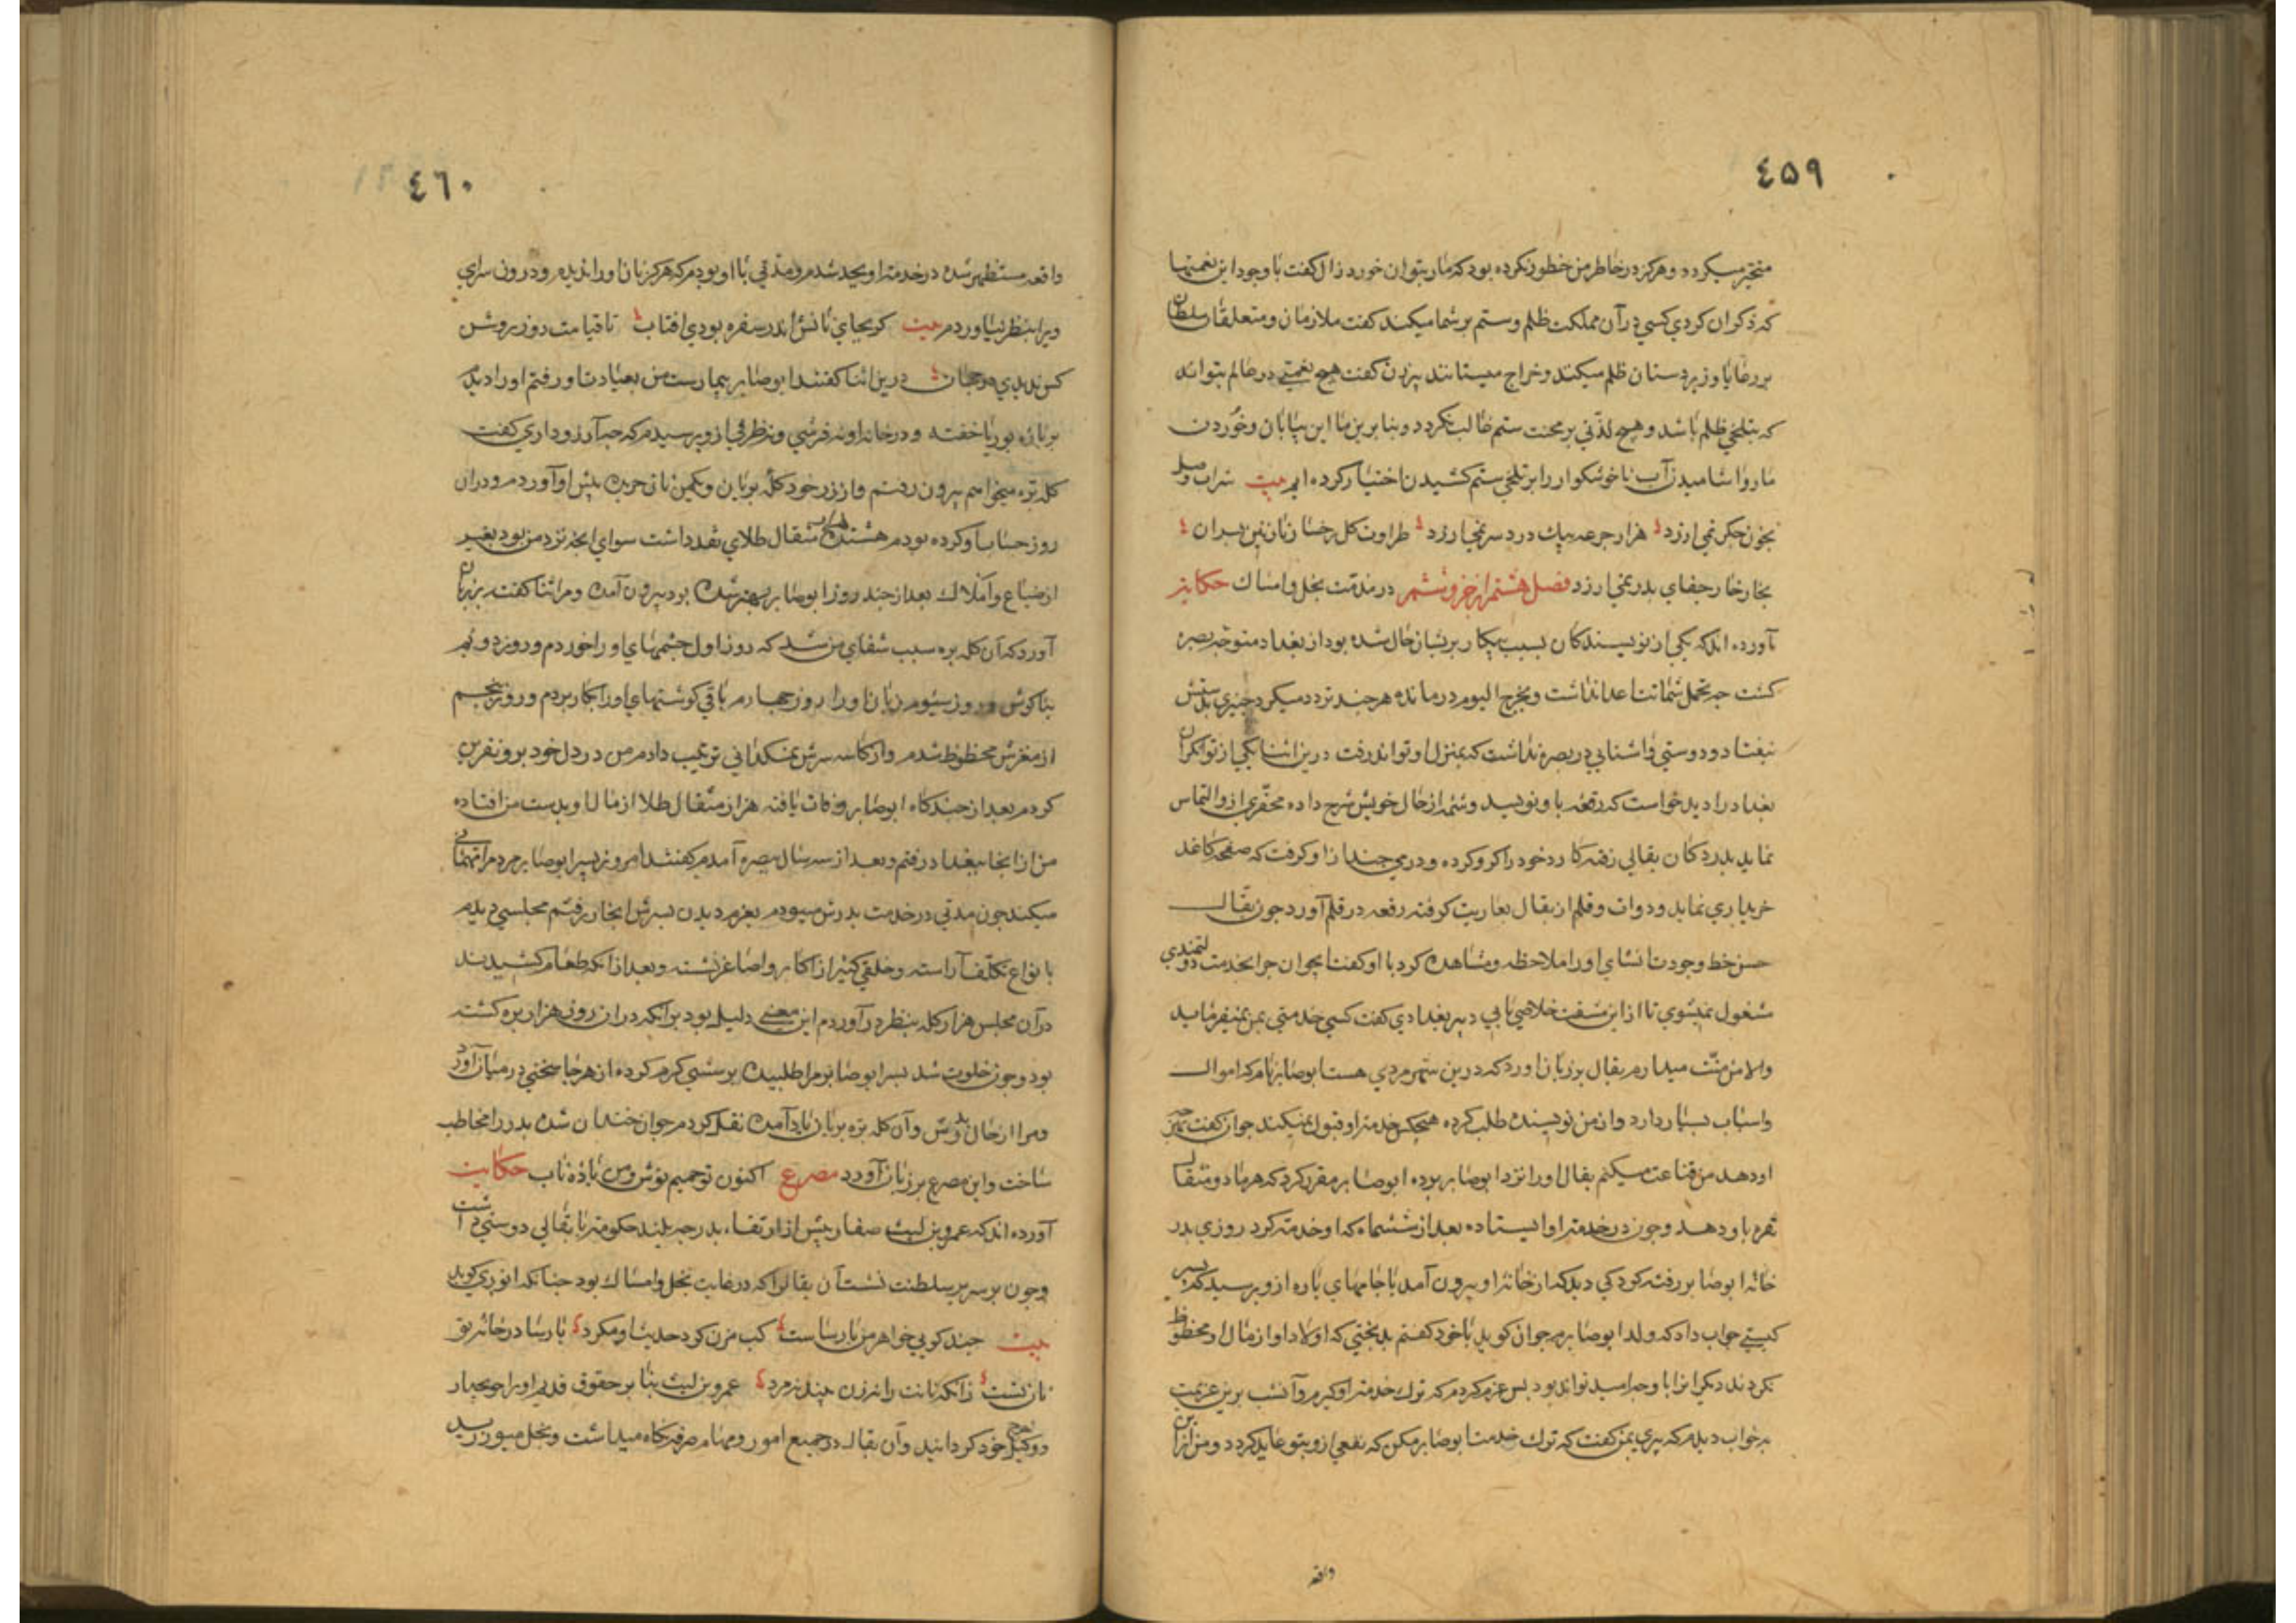 ٤٥٩
متحیر میکردد و هرکز در خاطر من خطور نکرده بود که مار بتوان خورد زال کفت با وجود این نعمتها
که ذکر ان کردی کسی در آن مملکت ظلم و ستم بر شما میکند کفت ملازمان و متعلقان سلطان
بر رعایا و زیردستان ظلم میکنند و خراج میستانند پیرزن کفت هیچ نعمتی در عالم بتواند
که بتلخی ظلم باشد و هیچ لذتی بر محنت ستم غالب نکردد و بنا برین ما این بیابان و خوردن
مار و اشامیدن آب ناخوشکوار را بر تلخی ستم کشیدن اختیار کرده ایم بیت شراب وصل
بخون جکر نمی ارزد هزار جرعه بیک درد سر نمی ارزد طراوت کل رخسار نازنین پسران
بخار خار جفای پدر نمی ارزد فصل هشتم از خرو ششم در مذمت بخل و امساک حکایت
آورده اند که یکی از نویسندکان بسبب بیکار پریشان حال شده بود از بغداد متوجه بصره
کشت جه تحمل شماتت اعدا نداشت و بخرج الیوم درمانده هرجند تردد میکرد جیزی بدستش
نیفتاد و دوستی و اشنایی در بصره نداشت که بمنزل او تواند رفت درین اثنا یکی از توانکران
بغداد را دید خواست که رقعه باو نویسد و شمه از حال خویش شرح داده محقری ازو التماس
نماید بدر دکان بقالی رفته کارد خود را کرو کرده و درمی جند ازو کرفت که صفحه کاغذ
خریداری نماید و دوات و قلم از بقال بعاریت کرفته رقعه در قلم آورد جون بقال
حسن خط و جودت انشای او را ملاحظه و مشاهده کرد با او کفت ایجوان جرا بخدمت دولتمندی
مشغول نمیشوی تا از این مشقت خلاصی یابی دبیر بغدادی کفت کسی خدمتی بمن نمیفرماید
والا من منت میدارم بقال بر زبان اورد که درین شهر مردی هست ابوصابر نام که اموال
و اسباب بسیار دارد و از من نویسنده طلب کرده هیجکس خدمت او قبول نمیکند جوان کفت هر جه
او دهد من قناعت میکنم بقال او را نزد ابوصابر برده ابوصابر مقرر کرد که هر ماه دو مثقال
نقره باو دهد و جون در خدمت او ایستاده بعد از ششماه که او خدمت کرد روزی بدر
خانه ابوصابر رفته کودکی دید که از خانه او بیرون آمد با جامهای پاره ازو پرسید که پسر
کیستی جواب داد که ولد ابوصابرم جوان کوید با خود کفتم بدبختی که اولاد او از مال او محظوظ
نکردند دیکرانرا با وجه امید تواند بود پس عزم کردم که ترک خدمت او کیرم و آنشب برین عزیمت
بخواب دیدم که پیری بمن کفت که ترک خدمت ابوصابر مکن که نفعی ازو بتو عاید کردد و من از این
واقعه
٤٦٠
واقعه مستظهر شده در خدمت او بجد شدم و مدتی با او بودم که هرکز نان او را ندیدم و درون سرای
ویرا بنظر نیاوردم بیت کر بجای نانش اندر سفره بودی افتاب تا قیامت روز روشن
کس ندیدی در جهان درین اثنا کفتند ابوصابر بیمارست من بعیادت او رفتم او را دیدم
بر پاره بوریا خفته و در خانه او نه فرشی و نه ظرفی ازو پرسیدم که جه آرزو داری کفت
کله بره میخواهم بیرون رفتم و از زر خود کله بریان و یکمن نان خریده پیش او آوردم و دران
روز حساب او کرده بودم هشتصد مثقال طلای نقد داشت سوای انجه نزد من بود بغیر
از ضیاع و املاک بعد از جند روز ابوصابر بهتر شده بود بیرون آمده و مرا ثنا کفت بر زبان
آورد که آن کله بره سبب شفای من شد که روز اول جشمهای او را خوردم و روز دویم
بناکوش و روز سیوم زبان او را روز جهارم باقی کوشتهای او را بکار بردم و روز پنجم
از مغزش محظوظ شدم و از کاسه سرش نمکدانی ترتیب دادم من در دل خود برو نفرین
کردم بعد از جند کاه ابوصابر وفات یافته هزار مثقال طلا از مال او بدست من افتاده
من از انجا ببغداد رفتم و بعد از سه سال ببصره آمدم کفتند امروز پسر ابوصابر مردم را مهمانی
میکند جون مدتی در خدمت پدرش میبودم بعزم دیدن پسرش انجا رفتم مجلسی دیدم
بانواع تکلف آراسته و خلقی کثیر از اکابر و اصاغر نشسته و بعد از انکه طعام کشیدند
در آن مجلس هزار کله بنظر درآوردم این معنی دلیل بود برانکه دران روز هزار بره کشته
بود و جون خلوت شد پسر ابوصابر مرا طلبیده پرسشی کرم کرده از هر جا سخنی در میان آورد
و مرا از حال پدرش و آن کله بره بریان یاد آمده نقل کردم جوان خندان شده پدر را مخاطب
ساخت و این مصرع بر زبان آورد مصرع اکنون تو حمیم نوش و من باده ناب حکایت
آورده اند که عمرو بن لیث صفار پیش از ارتقاء بدرجه بلند حکومت با بقالی دوستی داشت
و جون بر سریر سلطنت نشست آن بقال را که در غایت بخل و امساک بود جنانکه انوری کوید
بیت جند کویی خواهر من پارساست کب مزن کرد حدیث او مکرد پارسا در خانه تو
نان تست زانکه نانت را نه زن بیند نه مرد عمرو بن لیث بنا بر حقوق قدیم او را حویجدار
و وکیل خرج خود کردانید و آن بقال در جمیع امور و مهمام صرفه نکاه میداشت و بخل میورزید